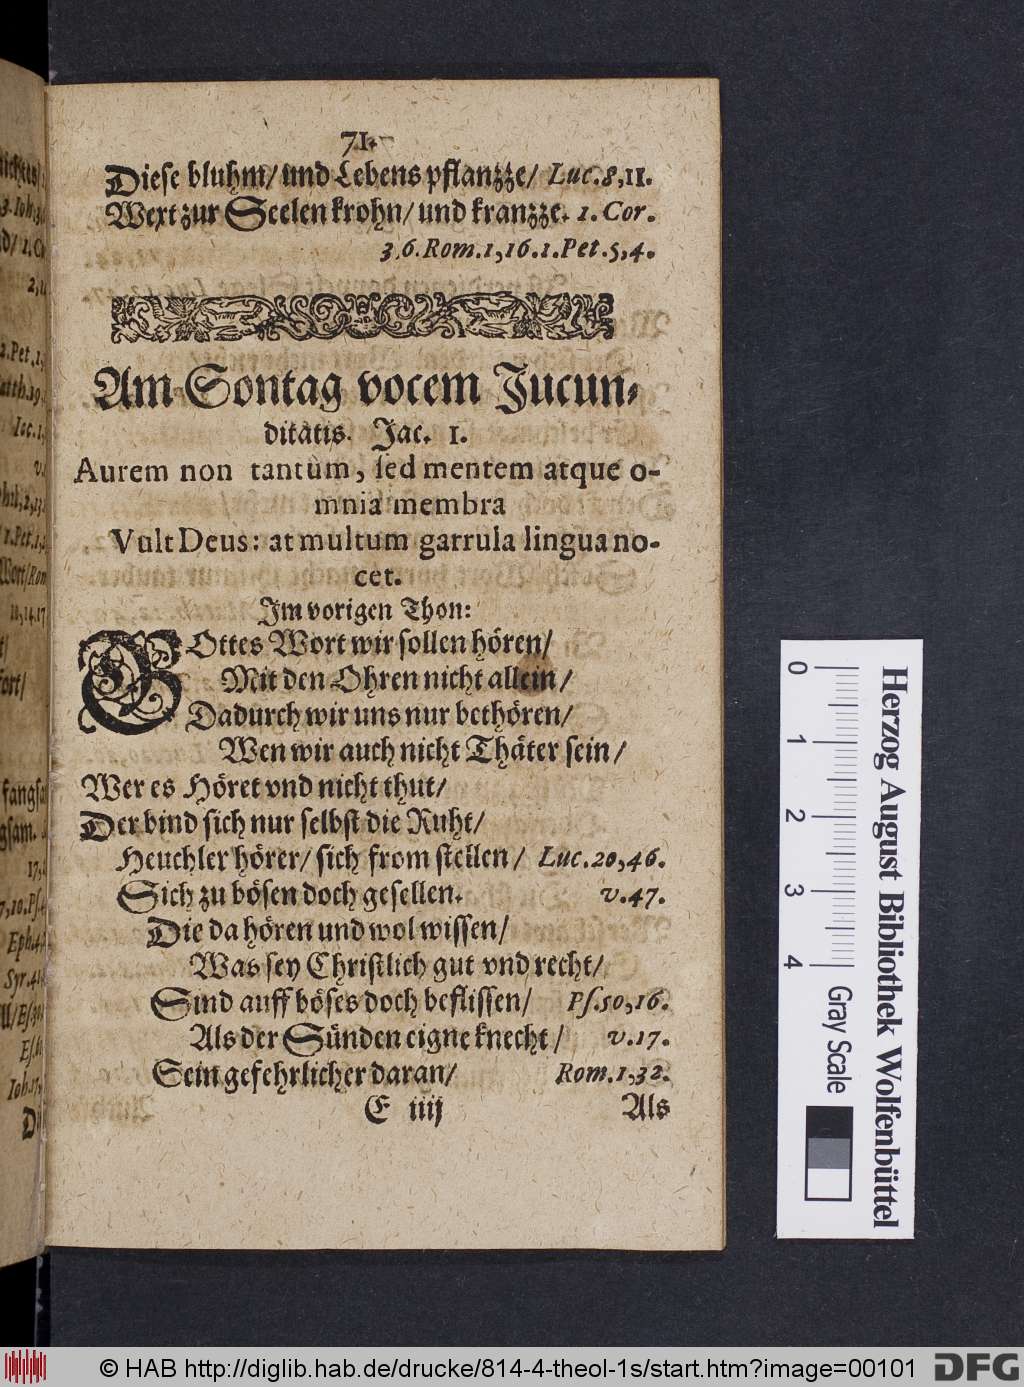 71.
Diese bluhm/ und Lebens pflanzze/ Luc. 8,11.
Wext zur Seelen krohn/ und kranzze. 1. Cor.
3,6. Rom. 1,16. 1. Pet. 5,4.
Am Sontag vocem Jucun-
ditatis. Jac. 1.
Aurem non tantùm, sed mentem atque o-
mnia membra
Vult Deus: at multum garrula lingua no-
cet.
Im vorigen Thon:
GOttes Wort wir sollen hören/
Mit den Ohren nicht allein/
Dadurch wir uns nur bethören/
Wen wir auch nicht Thäter sein/
Wer es Höret vnd nicht thut/
Der bind sich nur selbst die Ruht/
Heuchler hörer/ sich from stellen/ Luc. 20,46.
Sich zu bösen doch gesellen. v. 47.
Die da hören und wol wissen/
Was sey Christlich gut vnd recht/
Sind auff böses doch beflissen/ Ps. 50,16.
Als der Sünden eigne knecht/ v. 17.
Sein gefehrlicher daran/ Rom. 1,32.
E iiij Als
3. Joh.
2. Pet. 1,
Jac. 1,
v.
1. Pet. 1,
Wort/ Rom
10,14.17
fort/
17,
Eph. 4,
Syr. 4
0 1 2 3 4
Gray Scale
Herzog August Bibliothek Wolfenbüttel
© HAB http://diglib.hab.de/drucke/814-4-theol-1s/start.htm?image=00101
DFG